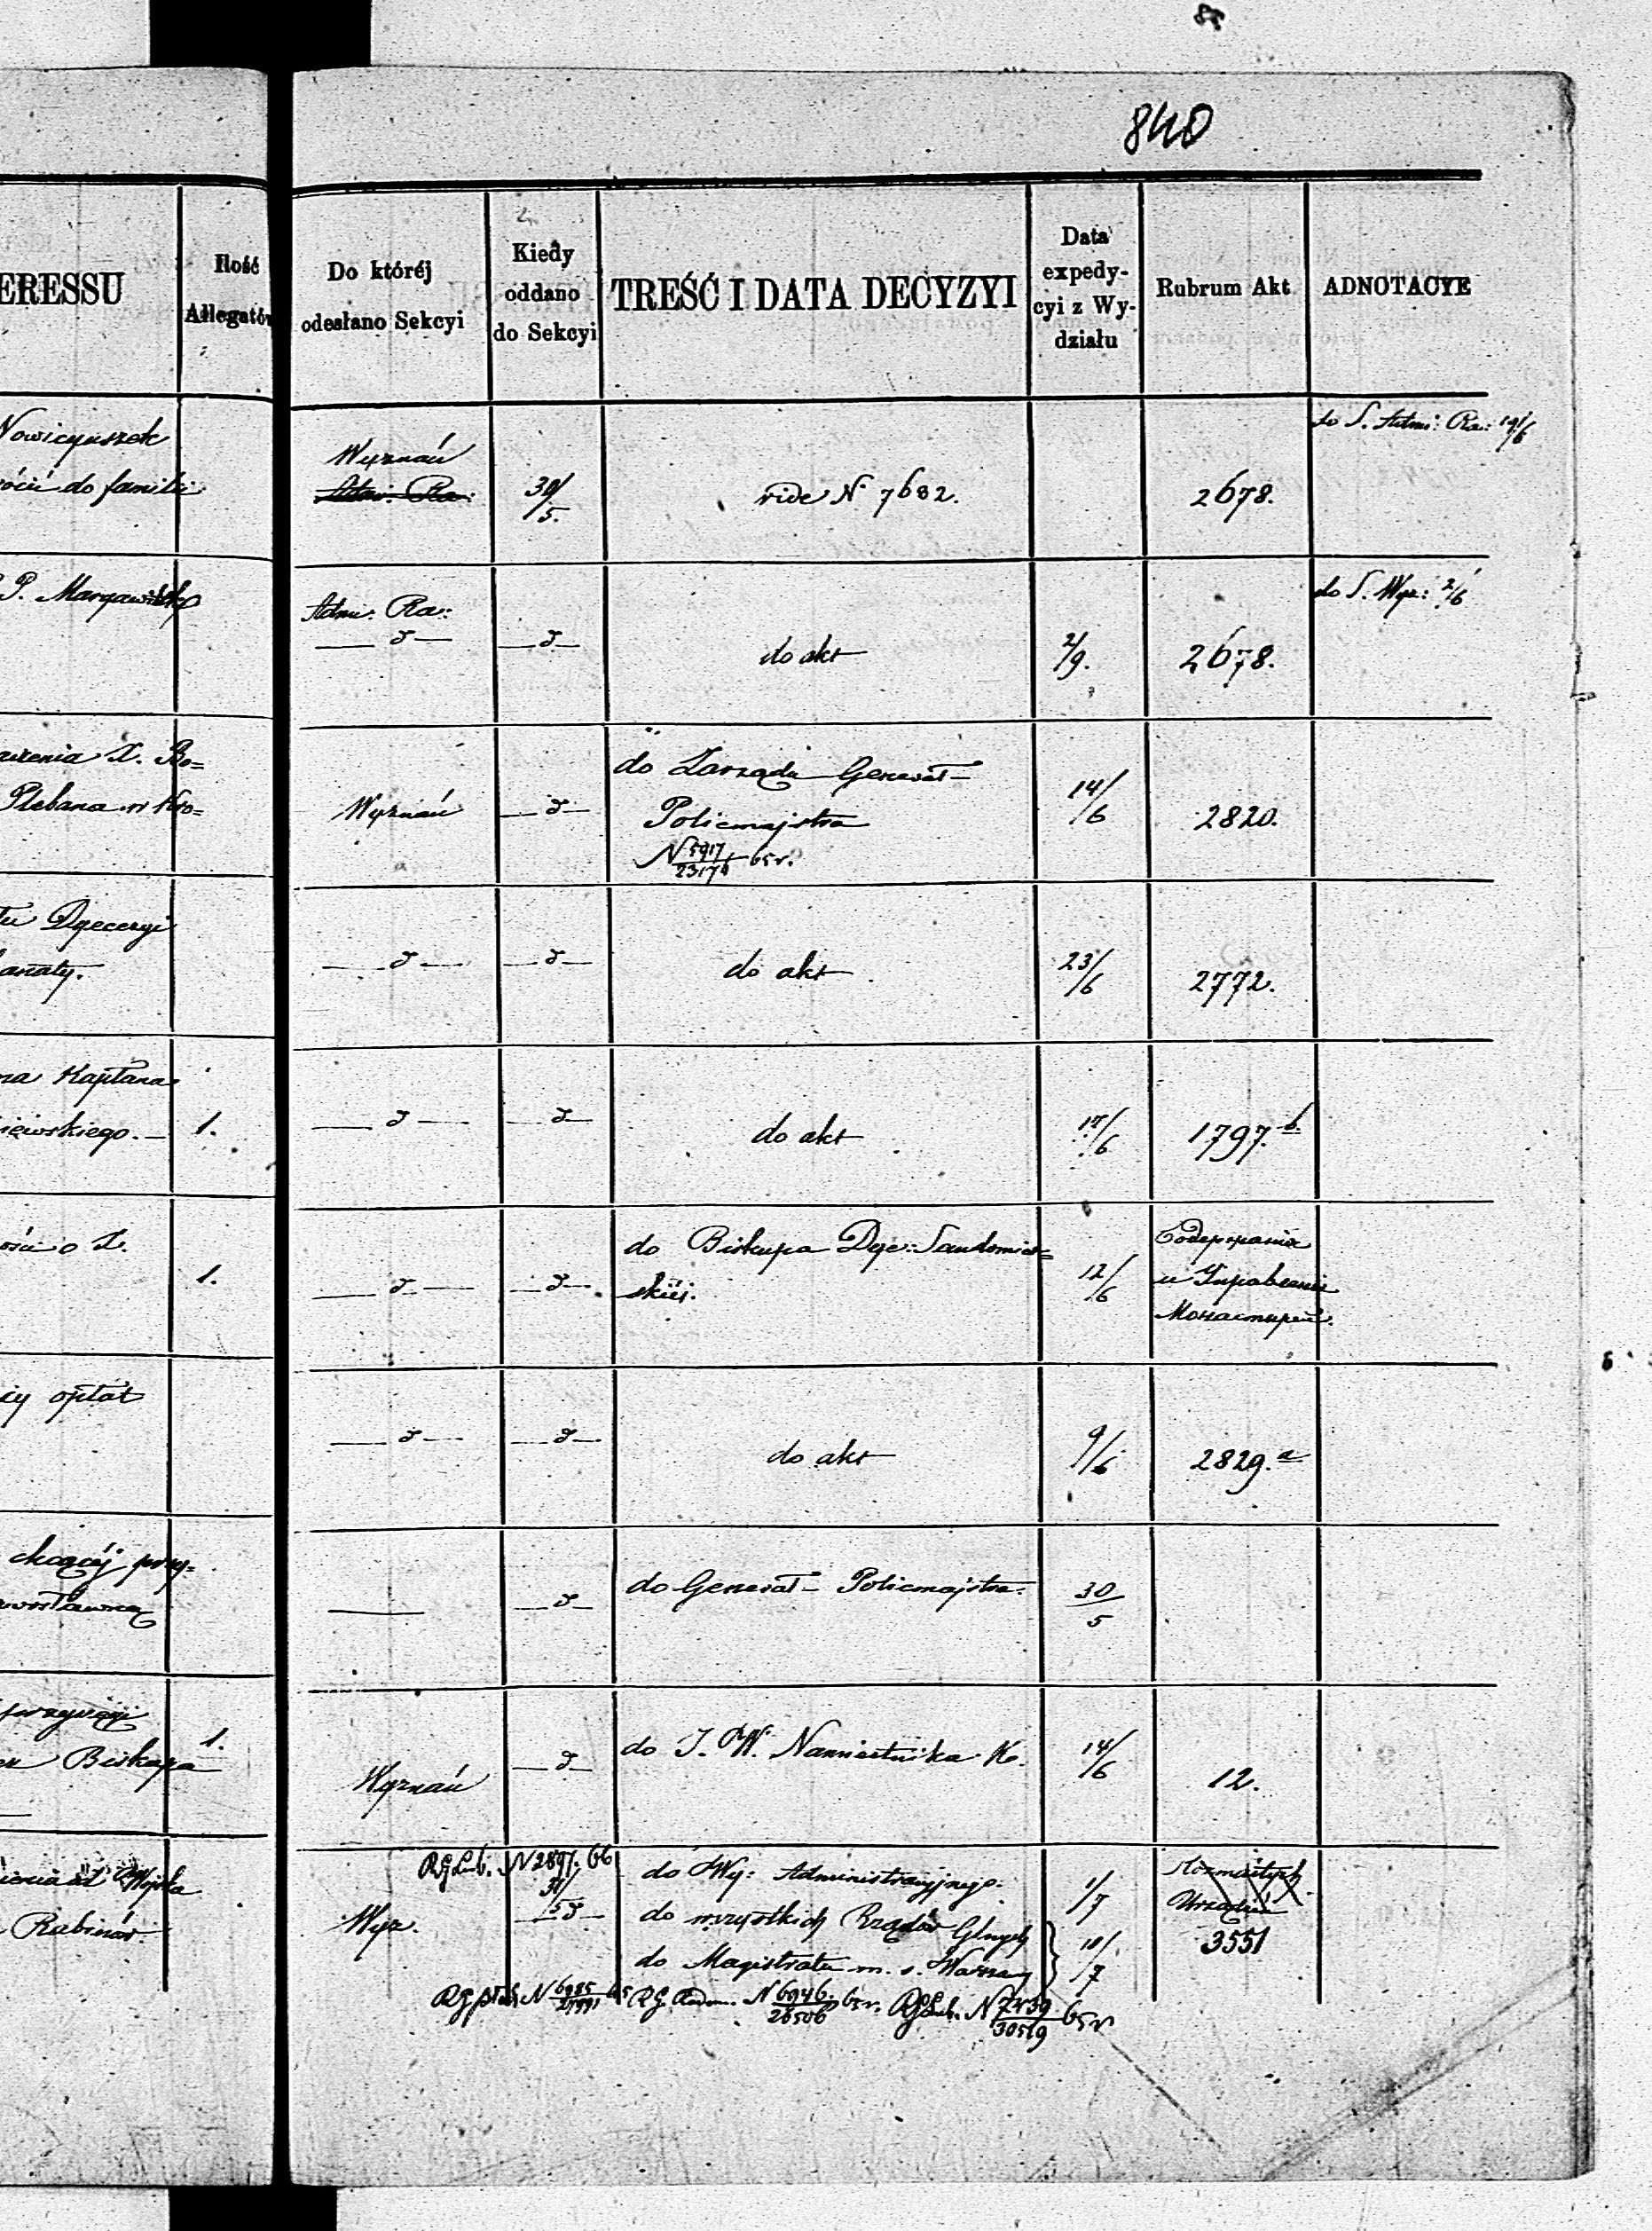 840
ERESSU
Ilość
Allegatów
Do któréj
odesłano Sekcyi
Kiedy
oddano
do Sekcyi
TREŚĆ I DATA DECYZYI
Data
expedy-
cyi z Wy-
działu
Rubrum Akt
ADNOTACYE
Nowicyuszek
rócić do familii
Wyznań
Adm: Ra:
30/5.
vide N. 7682.
2678.
do S. Admi: Ra: 19/6
P. Margawską
Adm: Ra:
— d —
— d —
do akt
2/9.
2678.
do S. Wyz: 2/6
X. Bo=
Plebana w Kro=
Wyznań
— d —
do Zarządu Generał-
Policmajstra
N 5917/23174 65 r.
14/6
2820.
tu Dyecezyi
— d —
— d —
do akt
23/6
2772.
za Kapłana
iewskiego. —
1.
— d —
— d —
do akt
17/6
1797. b.
ości o X.
1.
— d —
— d —
do Biskupa Dye: Sandomier=
skiéj.
12/6
Содержание
и Управление
Монастырей.
cy opłat
— d —
— d —
do akt
9/6
2829. a
chcącéj przy=
awosławną
—
— d —
do Generał- Policmajstra.
30/5
przysięgi
Biskupa
1.
Wyznań
— d —
do J. W. Namiestnika K.
14/6
12.
od Wojska
Rabinów
Wyz.
RGLub. N 2897. 66
31/5
— d —
do Wy: Administracyjnego.
do wszystkich Rządów Glnych
do Magistratu m. s. Warszawy
1/7
10/7
Rozmaitych
Urządzeń
3551
N 6985 65 RG Radom. N 6946/26506 65 r. RGLub. N 7239/30519 65 r